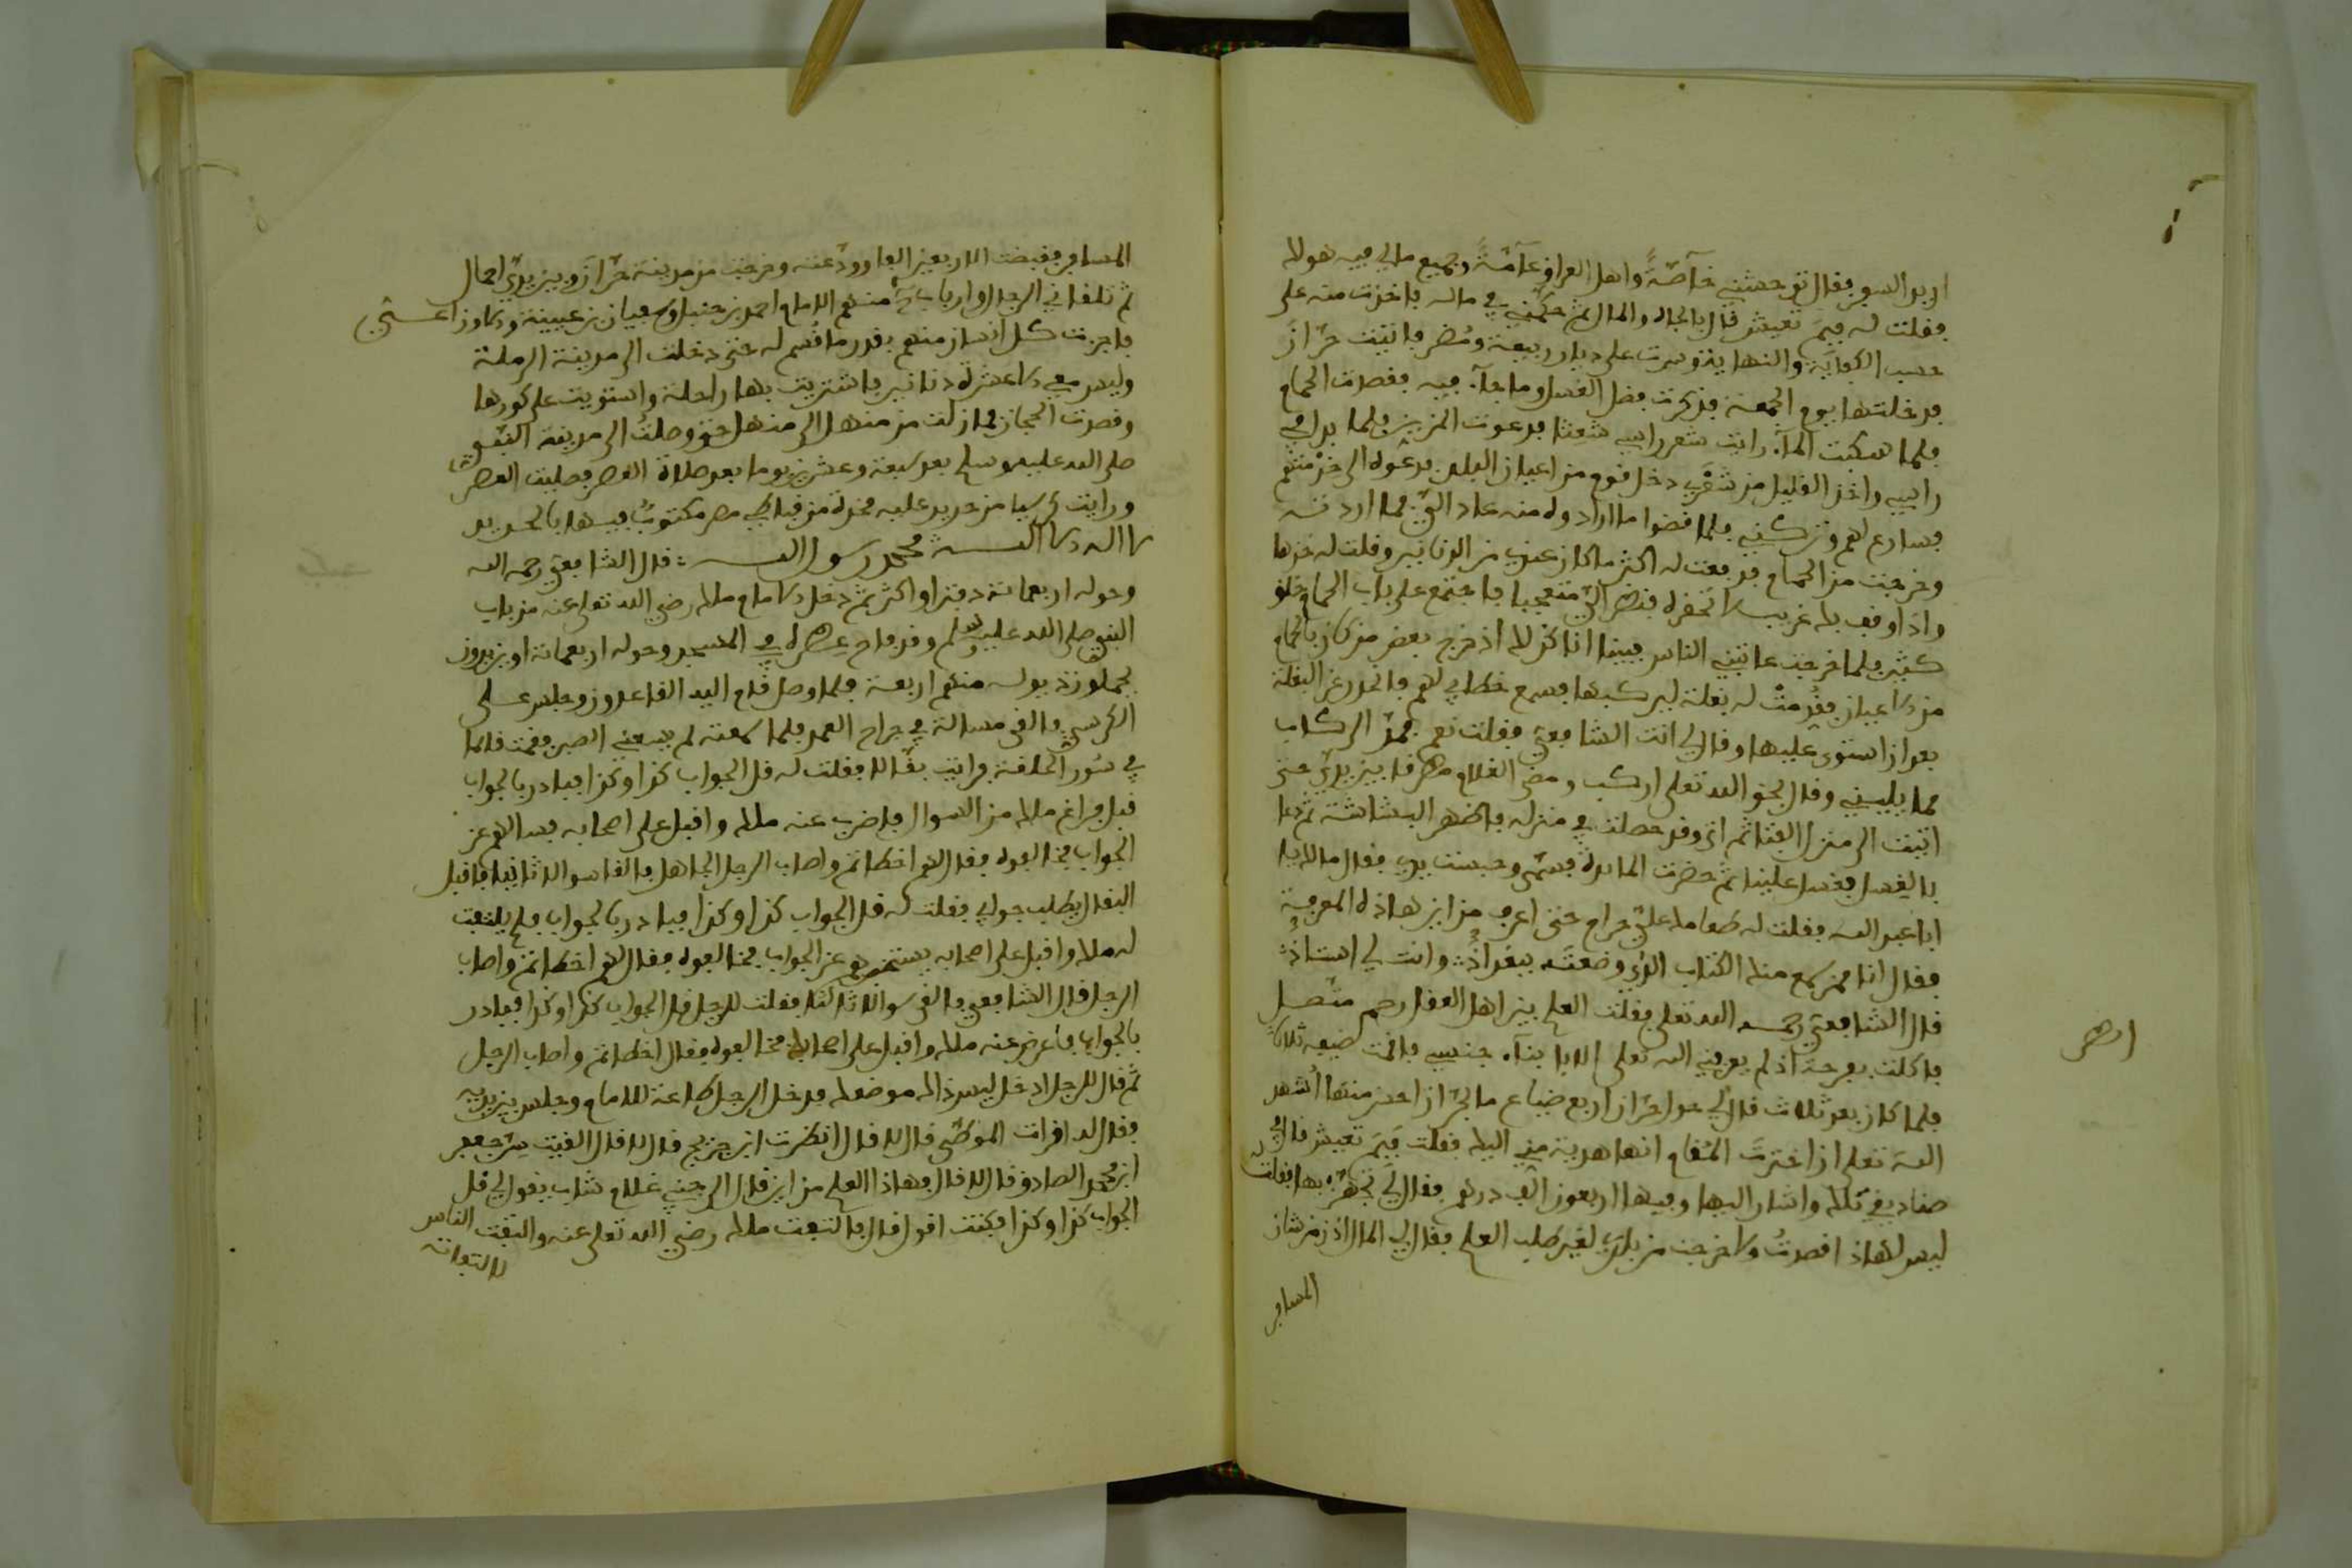 اريد السفر فقال توحشني خآصّةً واهل العراق عآمّةً وجميع مالي فيه هولا
فقلت له فيمَ تعيش قال بالجاه والمال ثم حكّمني في ماله فاخذت منه على
حسب الكفاية والنهاية وسرت على ديار ربيعة ومُضر فاتيت حرّان
فدخلتها يوم الجمعة فذكرت فضل الغسل وما جآء فيه فقصدت الحمام
فلما سكبت المآء رايت شعر راسي شعثا فدعوت المزين فلما بدا في
راسي واخذ القليل من شعري دخل قوم من اعيان البلد فدعوه الى خدمتهم
فسارع لهم وتركني فلما قضوا ما ارادوه منه عاد اليّ فما اردته
وخرجت من الحمام فدفعت له اكثر ما كان عندي من الدنانير وقلت له خذها
واذا وقف بك غريب لا تحقره فنضر اليّ متعجبا فاجتمع على باب الحمام خلق
كثير فلما خرجت عاتبني الناس فبينما انا كذلك اذ خرج بعض من كان بالحمام
من الاعيان فقُدمتْ له بغلة ليركبها فسمع خطابي لهم فانحدر عن البغلة
بعد ان استوى عليها وقال لي انت الشافعي فقلت نعم فمدّ الركاب
مما يليني وقال بحق الله تعلى اركب ومضى الغلام مطرقا بين يديّ حتى
اتيت الى منزل الفتا ثم اتى وقد حصلت في منزله فاظهر البشاشة ثم دعا
بالغسل فغسل علينا ثم حضرت المائدة فسمّى وحبست يدي فقال مالك يا
ابا عبد الله فقلت له طعامك عليّ حرام حتى اعرف من اين هاذه المعرفة
فقال انا ممن سمع منك الكتاب الذي وضعتَه ببغداذ وانت لي استاذ
قال الشافعي رحمه الله تعلى فقلت العلم بين اهل العقل رحم متصل
فاكلت بفرحة اذ لم يعرفني الله تعلى الا بابنآء جنسي فاقمت ضيفه ثلاثا
فلما كان بعد ثلاث قال لي حول حرّان اربع ضياع ما بحرّان احسن منها اُشهد
اللهَ تعلى ان اخترتَ المُقام انها هدية مني اليك فقلت فيمَ تعيش قال في
صناديقي تلك واشار اليها وفيها اربعون الف درهم فقال لي تجهّز بها فقلت له
ليس لهاذا قصدتُ ولا خرجت من بلدي لغير طلب العلم فقال لي المال اذن من شان
المسافر
اظهر
المسافر فقبضت الاربعين الفا وودّعته وخرجت من مدينة حرّان وبين يديّ احمال
ثم تلقاني الرجال وارباب منهم الامام احمد بن حنبل وسفيان بن عيينة والاوزاعي
فاجزت كل انسان منهم بقدر ما قُسم له حتى دخلت الى مدينة الرملة
وليس معي الا عشرة دنانير فاشتريت بها راحلة واستويت على كورها
وقصدت الحجاز فما زلت من منهل الى منهل حتى وصلت الى مدينة النبي
صلى الله عليه وسلم بعد سبعة وعشرين يوما بعد صلاة العصر فصليت العصر
ورايت كرسيا من حديد عليه مخدة من قباطي مصر مكتوبٌ فيها بالحرير
لا اله الا الله محمد رسول الله قال الشافعي رحمه الله
وحوله اربعمائة دفتر او اكثر ثم دخل الامام مالك رضي الله تعلى عنه من باب
النبي صلى الله عليه وسلم وقد فاح عطره في المسجد وحوله اربعمائة او يزيدون
يحملون ذيوله منهم اربعة فلما وصل قام اليه القاعدون وجلس على
الكرسي فالقى مسالة في جراح العمد فلما سمعته لم يسعني الصبر فقمت قائما
في سُور الحلقة فرايت بقّالا فقلت له قل الجواب كذا وكذا فبادر بالجواب
قبل فراغ مالك من السوال فاضرب عنه مالك واقبل على اصحابه فسالهم عن
الجواب فخالفوه فقال لهم اخطاتم واصاب الرجل الجاهل فالقا سوالا ثانيا فاقبل
البقال يطلب جوابي فقلت له قل الجواب كذا وكذا فبادر بالجواب فلم يلتفت
له مالك واقبل على اصحابه يستخبرهم عن الجواب فخالفوه فقال لهم اخطاتم واصاب
الرجل قال الشافعي فالقى سوالا ثالثا فقلت للرجل قل الجواب كذا وكذا فبادر
بالجواب فاعرض عنه مالك واقبل على اصحابه فخالفوه فقال اخطاتم واصاب الرجل
ثم قال للرجل ادخل ليس ذالك موضعك فدخل الرجل طاعة للامام وجلس بين يديه
فقال له اقرات الموطّى قال لا قال انظرت ابن جريج قال لا قال القيت جعفر
ابن محمد الصادق قال لا قال فهاذا العلم من اين قال الى جنبي غلام شاب يقول لي قل
الجواب كذا وكذا فكنت اقول قال فالتفت مالك رضي الله تعلى عنه والتفت الناس
لالتفاته